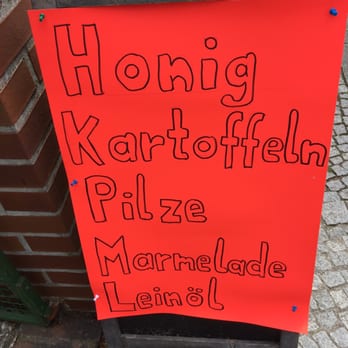 Honig
Kartoffeln
Pilze
Marmelade
Leinöl